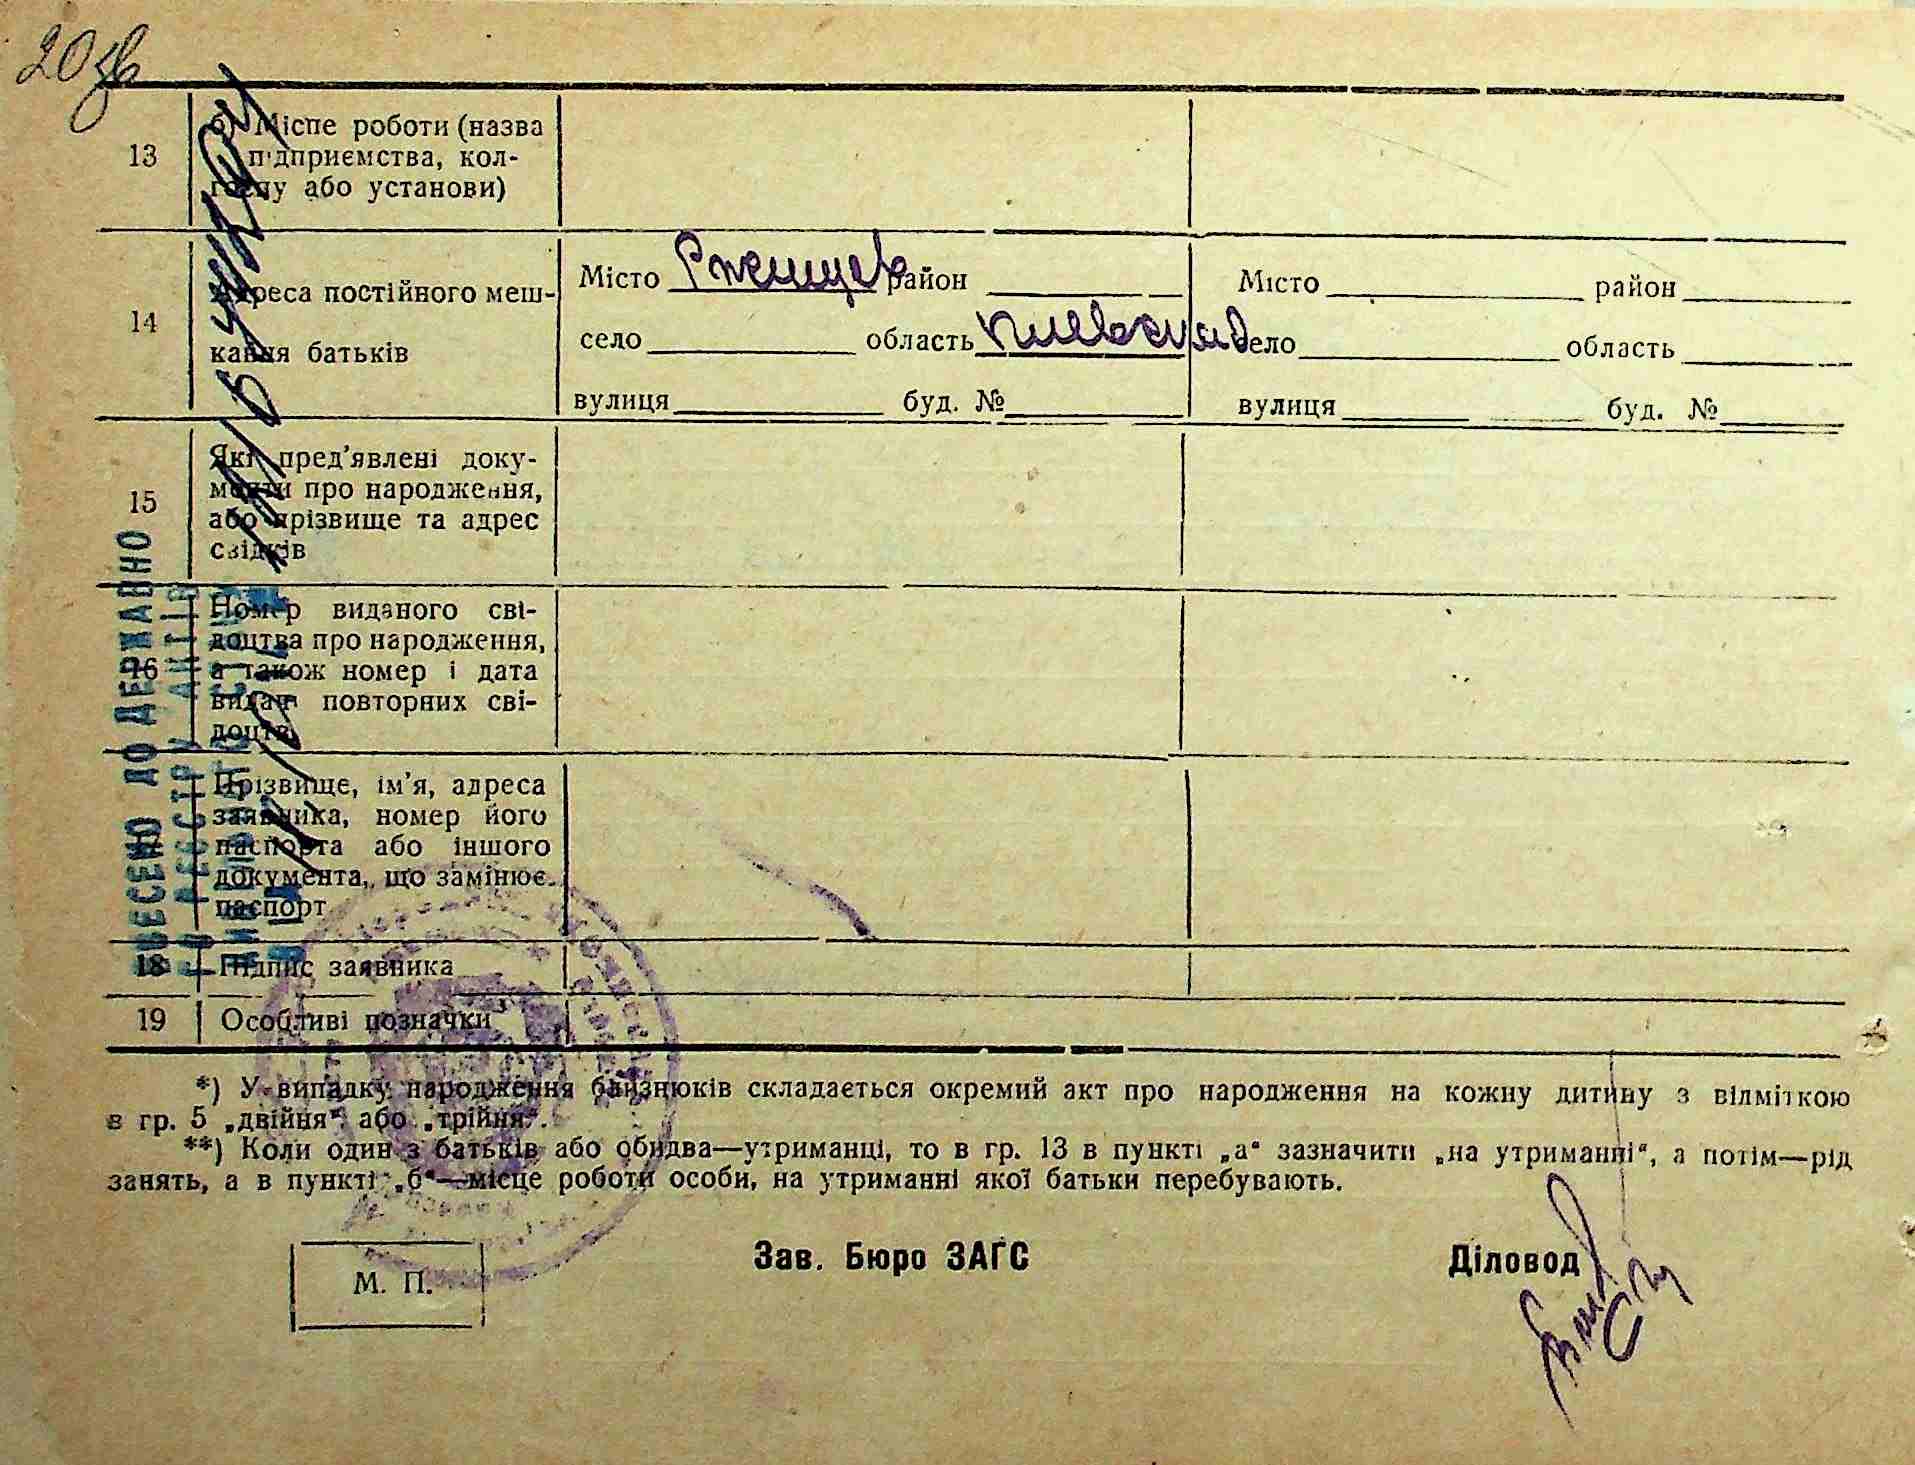 20зв
13
б) Місце роботи (назва
підприємства, кол-
госпу або установи)
14
Адреса постійного меш-
кання батьків
Місто Ржищев район
село область Киевская
вулиця буд. №
Місто район
село область
вулиця буд. №
15
Які пред'явлені доку-
менти про народження,
або прізвище та адрес
свідків
16
Номер виданого сві-
доцтва про народження,
а також номер і дата
видачі повторних сві-
доцтв
17
Прізвище, ім'я, адреса
заявника, номер його
паспорта або іншого
документа, що замінює
паспорт
18
Підпис заявника
19
Особливі позначки
*) У випадку народження близнюків складається окремий акт про народження на кожну дитину з відміткою
в гр. 5 „двійня“ або „трійня“.
**) Коли один з батьків або обидва—утриманці, то в гр. 13 в пункті „а“ зазначити „на утриманні“, а потім—рід
занять, а в пункті „б“—місце роботи особи, на утриманні якої батьки перебувають.
М. П.
Зав. Бюро ЗАГС
Діловод
ВНЕСЕНО ДО ДЕРЖАВНО
ГО РЕЄСТРУ АКТІВ